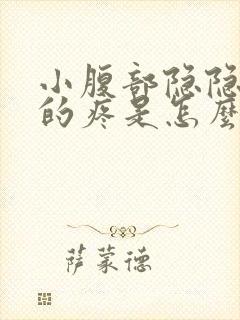 小腹部隐隐
的疼是怎麼
萨蒙德